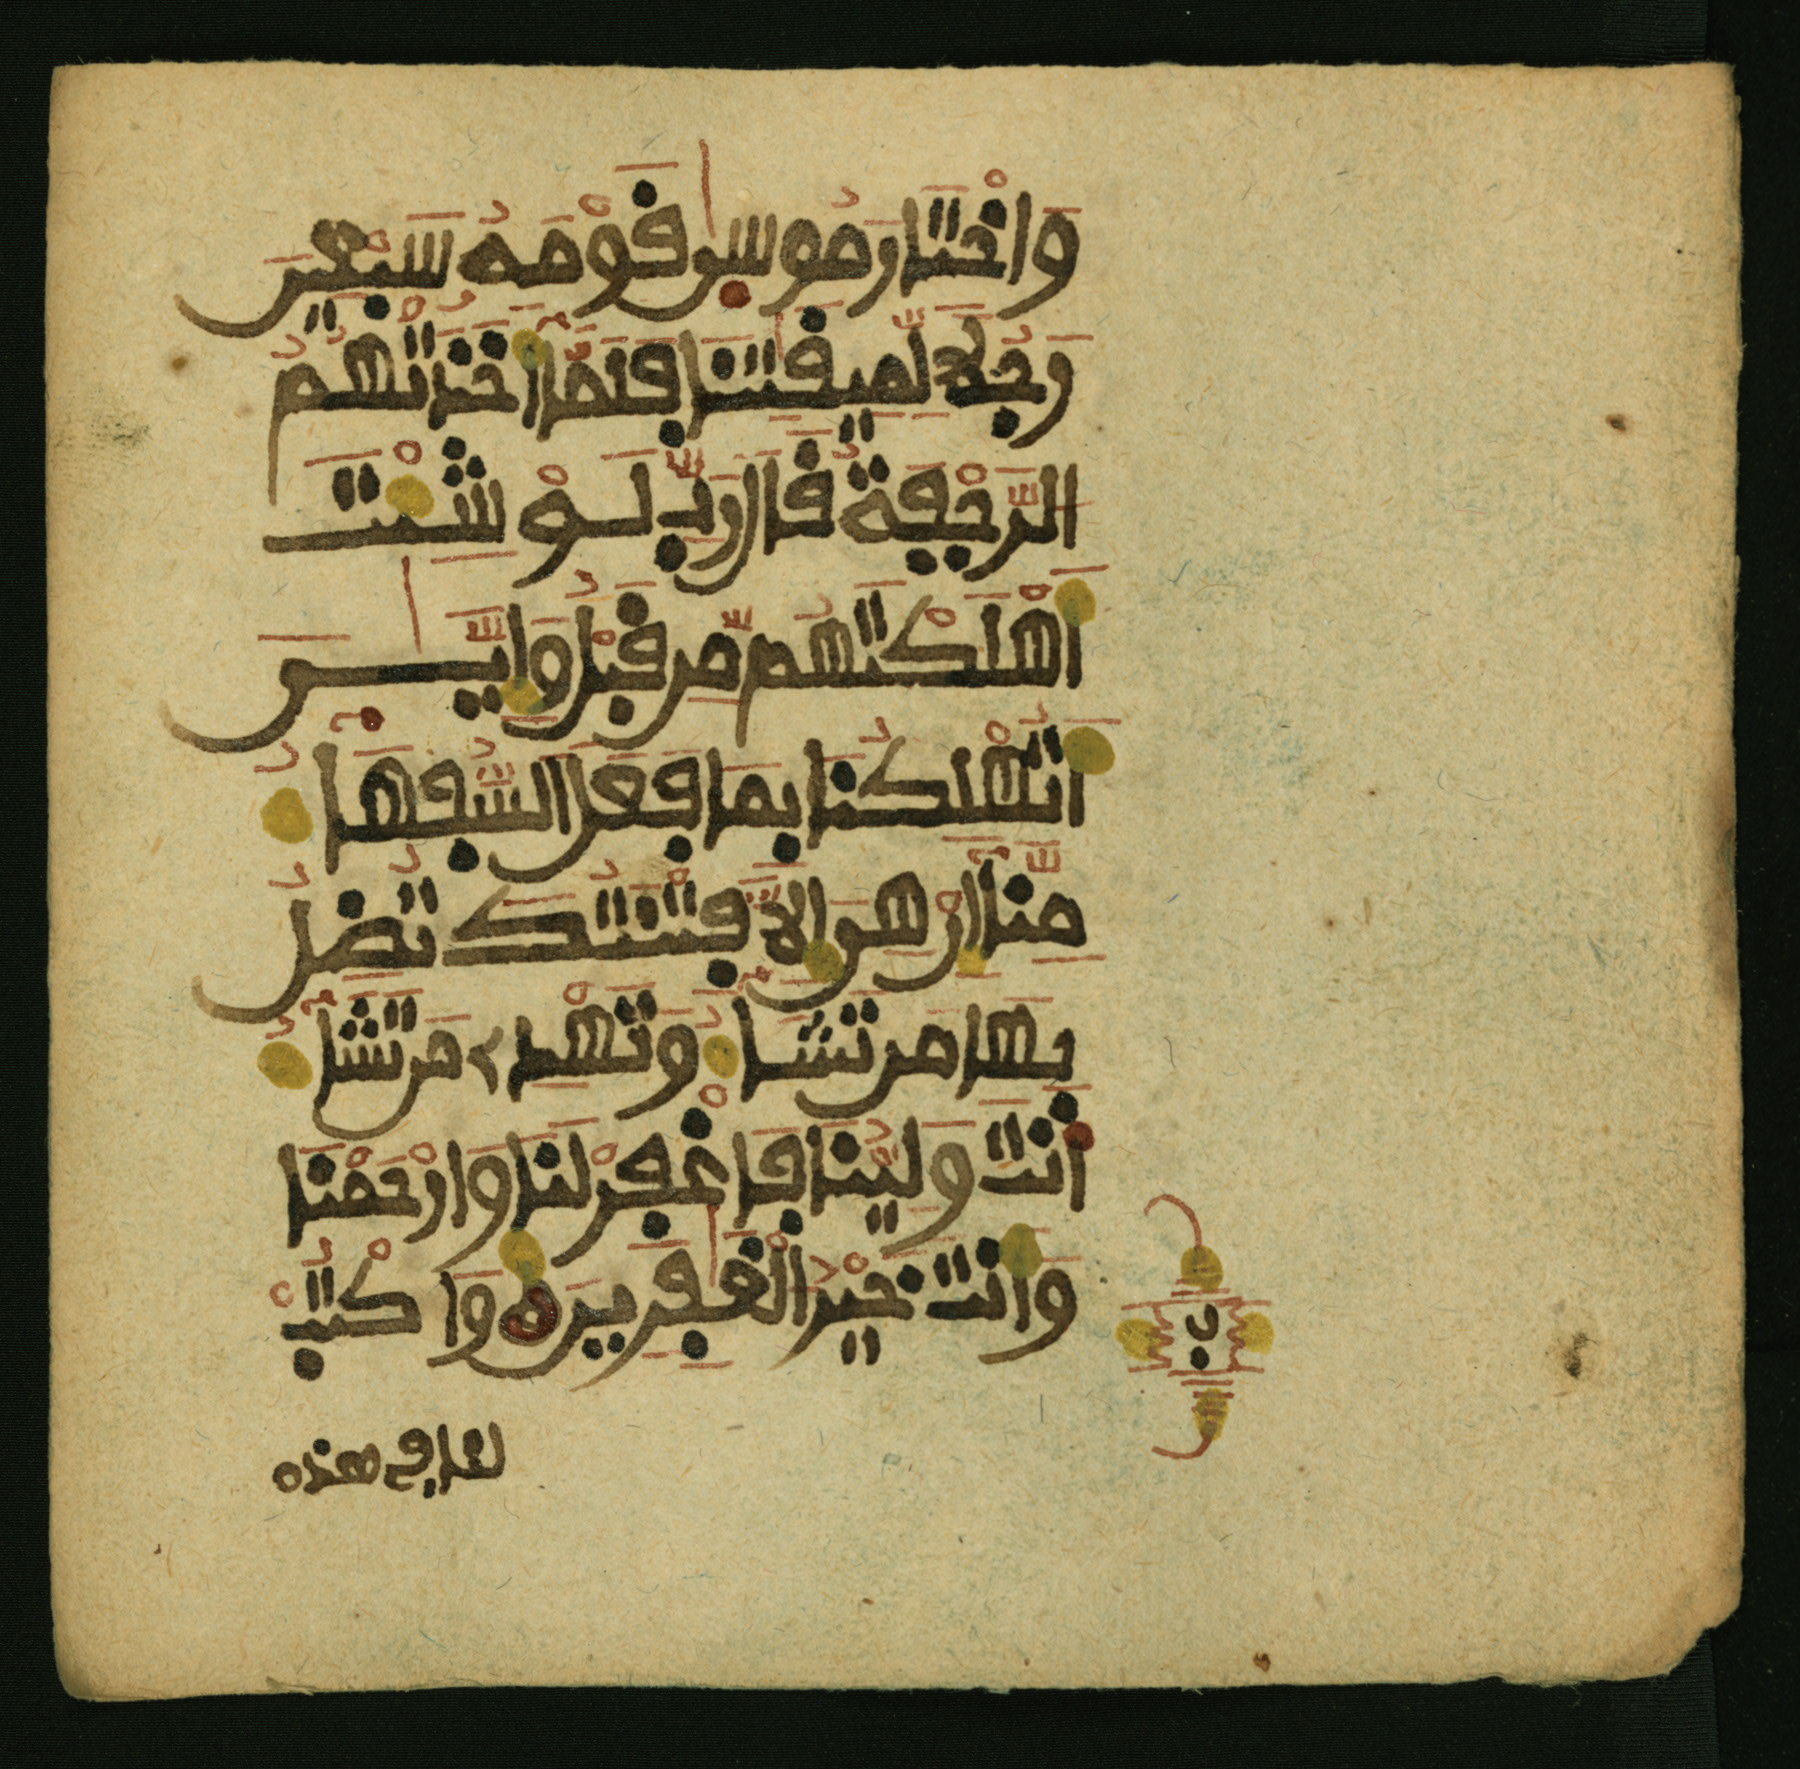 وَاخْتَارَ مُوسَى قَوْمَهُ سَبْعِينَ
رَجُلًا لِّمِيقَٰتِنَا فَلَمَّا أَخَذَتْهُمُ
الرَّجْفَةُ قَالَ رَبِّ لَوْ شِئْتَ
أَهْلَكْتَهُم مِّن قَبْلُ وَإِيَّٰيَ
أَتُهْلِكُنَا بِمَا فَعَلَ السُّفَهَاءُ
مِنَّا إِنْ هِيَ إِلَّا فِتْنَتُكَ تُضِلُّ
بِهَا مَن تَشَاءُ وَتَهْدِي مَن تَشَاءُ
أَنتَ وَلِيُّنَا فَاغْفِرْ لَنَا وَارْحَمْنَا
وَأَنتَ خَيْرُ الْغَٰفِرِينَ وَاكْتُبْ
لنا في هذه